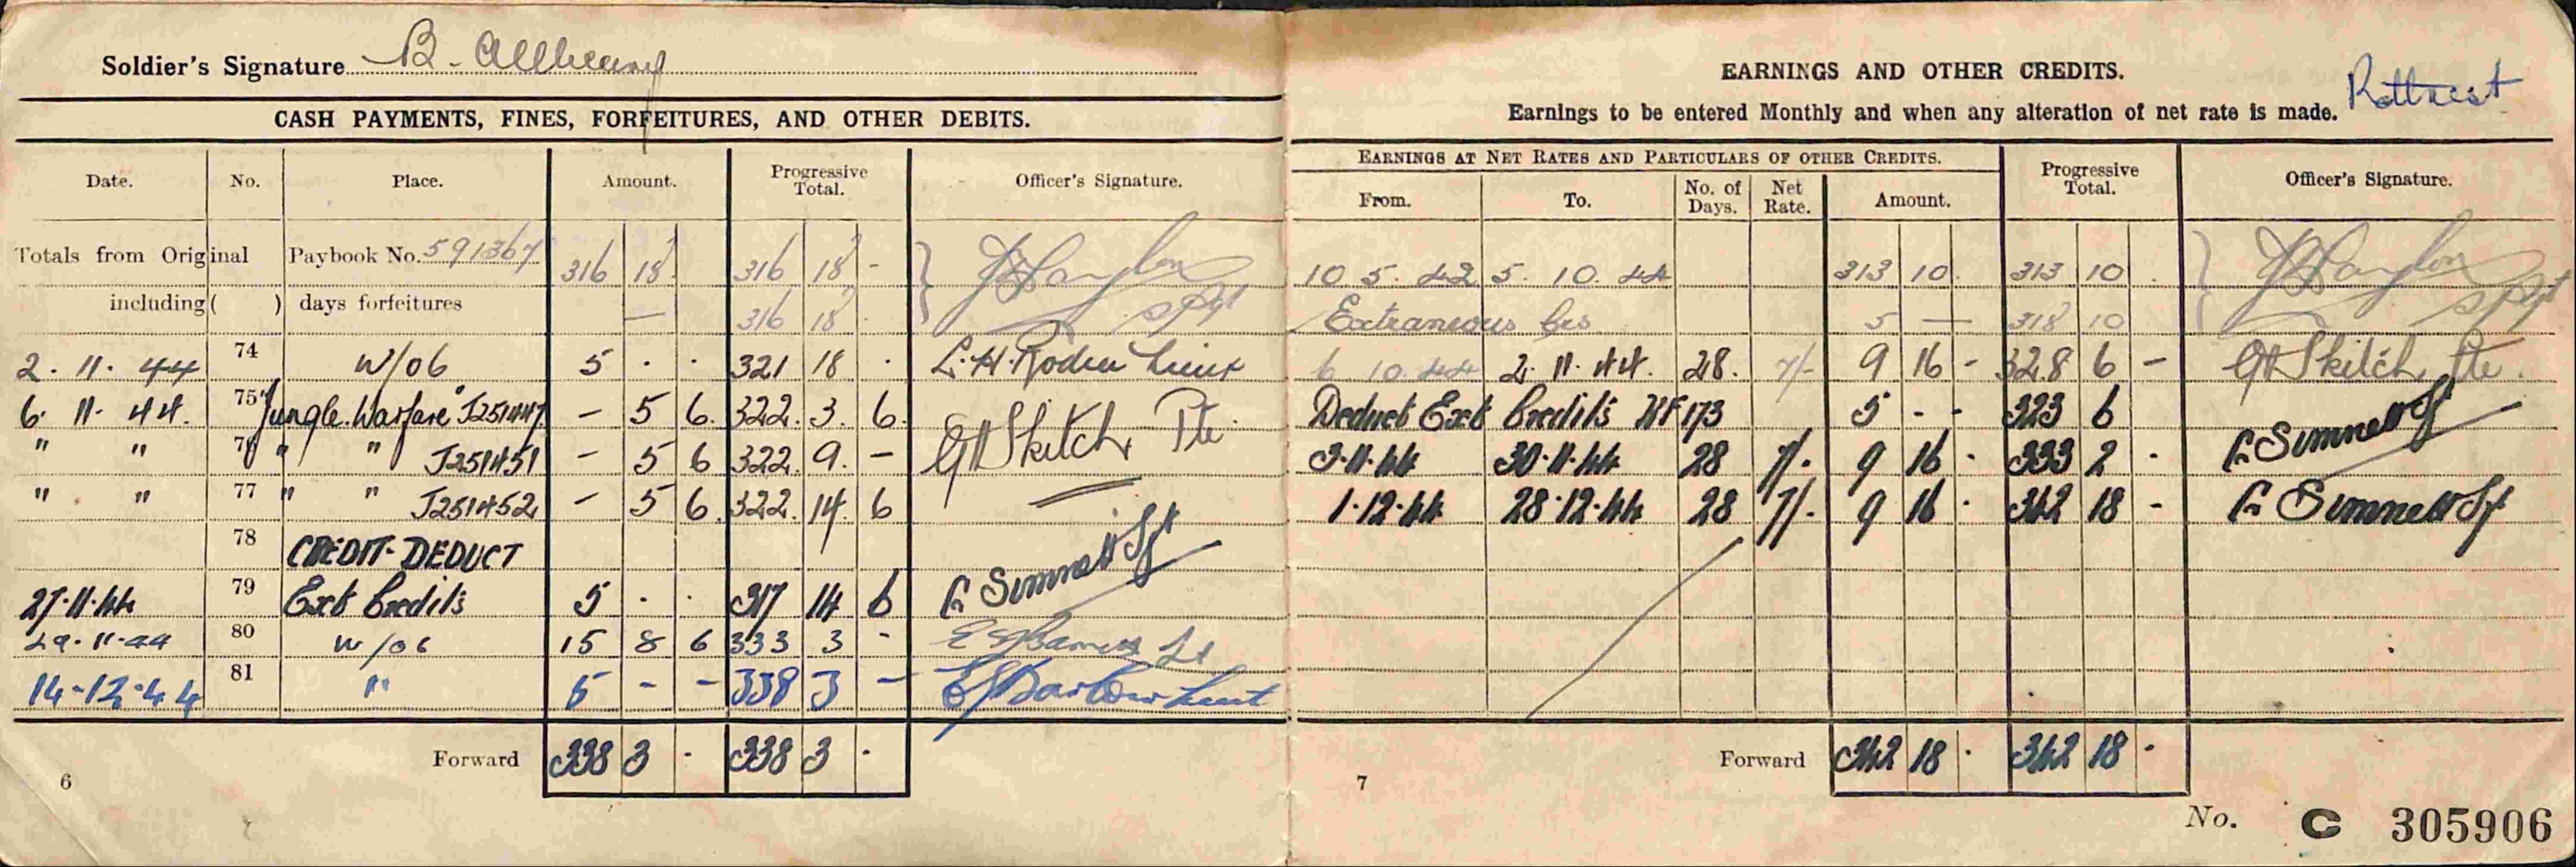 Soldier's Signature B. Allbeury
CASH PAYMENTS, FINES, FORFEITURES, AND OTHER DEBITS.
Date. No. Place. Amount. Progressive Total. Officer's Signature.
Totals from Original Paybook No. 591367 316 18 316 18 -
including ( ) days forfeitures — 316 18
Sgt
2. 11. 44 74 W/O6 5 . . 321 18 . L. H. Lieut
6. 11. 44. 75 "Jungle Warfare" J251447 - 5 6. 322. 3. 6.
" " 76 " " J251451 - 5 6 322. 9. - G H Skitch Pte.
" " 77 " " J251452 - 5 6. 322. 14. 6
78 CREDIT-DEDUCT
27.11.44 79 Ext Credits 5 . . 317 14 6 Simnett Sgt
29.11.44 80 W/O6 15 8 6 333 3 - Lt
14-12-44 81 " 5 - - 338 3 - Lieut
Forward 338 3 . 338 3 .
6
EARNINGS AND OTHER CREDITS. Rottnest
Earnings to be entered Monthly and when any alteration of net rate is made.
EARNINGS AT NET RATES AND PARTICULARS OF OTHER CREDITS.
From. To. No. of Days. Net Rate. Amount. Progressive Total. Officer's Signature.
10 5. 42 5. 10. 44 313 10. 313 10 .
Extraneous Crs 5 — 318 10 Sgt
6 10. 44 2. 11. 44. 28. 7/- 9 16 - 328 6 - G H Skitch Pte.
Deduct Ext Credits WF173 5 - - 323 6
3.11.44 30.11.44 28 7/. 9 16 . 333 2 . Simnett Sgt
1.12.44 28.12.44 28 7/. 9 16 . 342 18 - Simnett Sgt
Forward 342 18 . 342 18 .
7
No. C 305906